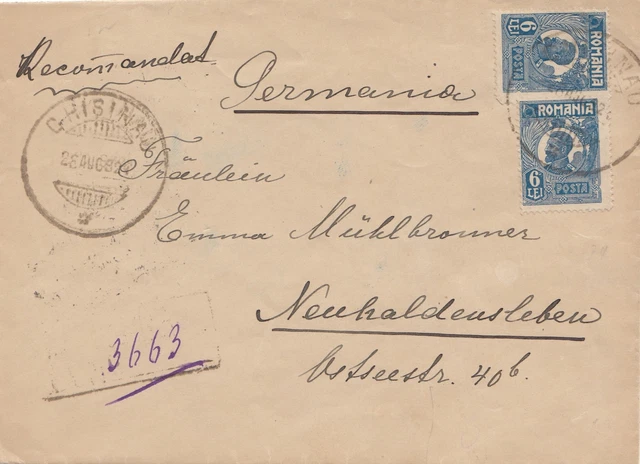 Recomandat
6 LEI POSTA ROMANIA
Germania
ROMANIA
6 LEI POSTA
CHISINAU
Fräulein
Emma Mühlbronner
Neuhaldensleben
Ostseestr. 40b.
3663